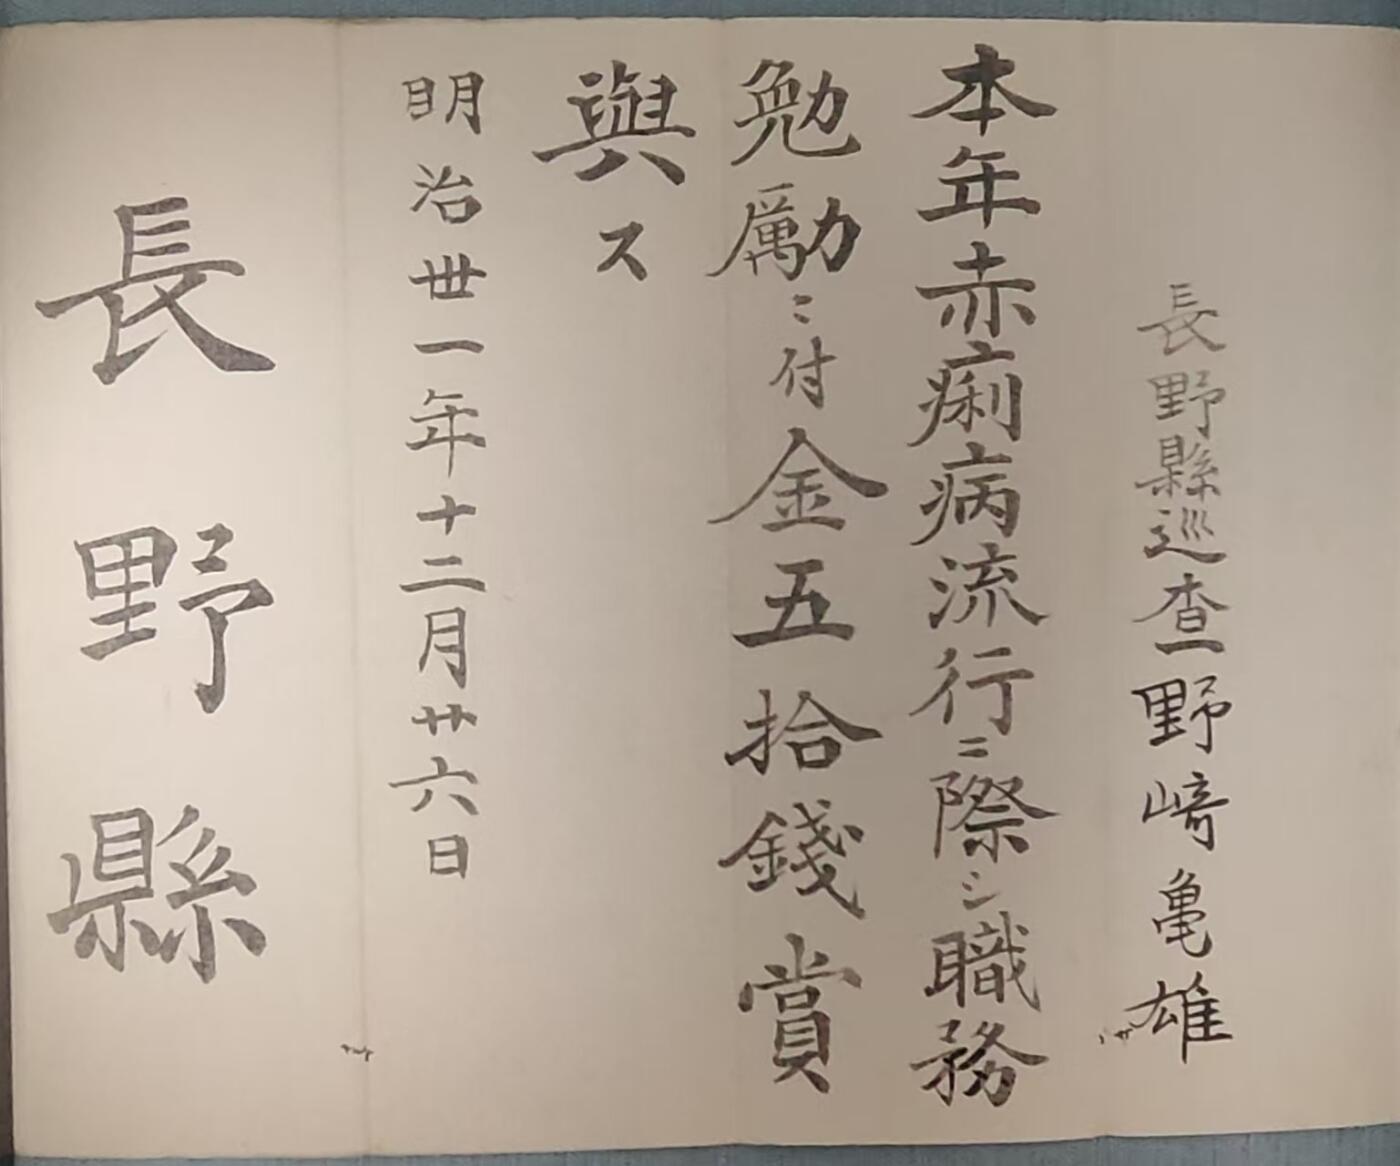 長野縣巡査野﨑亀雄
本年赤痢病流行ニ際シ職務
勉励ニ付金五拾錢賞
與ス
明治丗一年十二月廿六日
長野縣